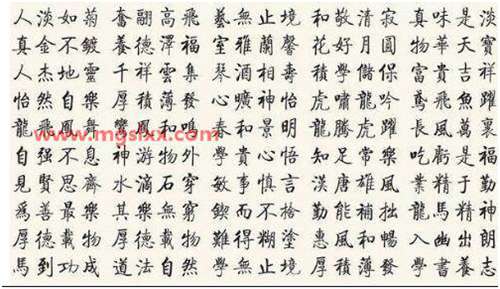 人淡如菊 奮翮高飛 藝無止境 和敬清寂 真味是淡
真金不鍍 養德澤福 室雅蘭馨 花好月圓 物華天寶
人杰地靈 千祥雲集 琴酒相壽 積學儲保 富貴吉祥
怡然自樂 厚積薄發 心曠神怡 虎嘯龍吟 鳶飛魚躍
www.mgsixx.com
龍飛鳳舞 春和景明 龍騰虎躍 長風萬裏
自强不息 神游物外 學貴心悟 知足常樂 吃虧是福
見賢思齊 水滴石穿 敏事慎言 漢唐雄風 業精于勤
爲善最樂 其樂無窮 鍥而不捨 勤能補拙 龍馬精神
厚德載物 難得糊塗 惠風和暢 入幽出朗
馬到功成 道法自然 學無止境 厚積薄發 學書養志